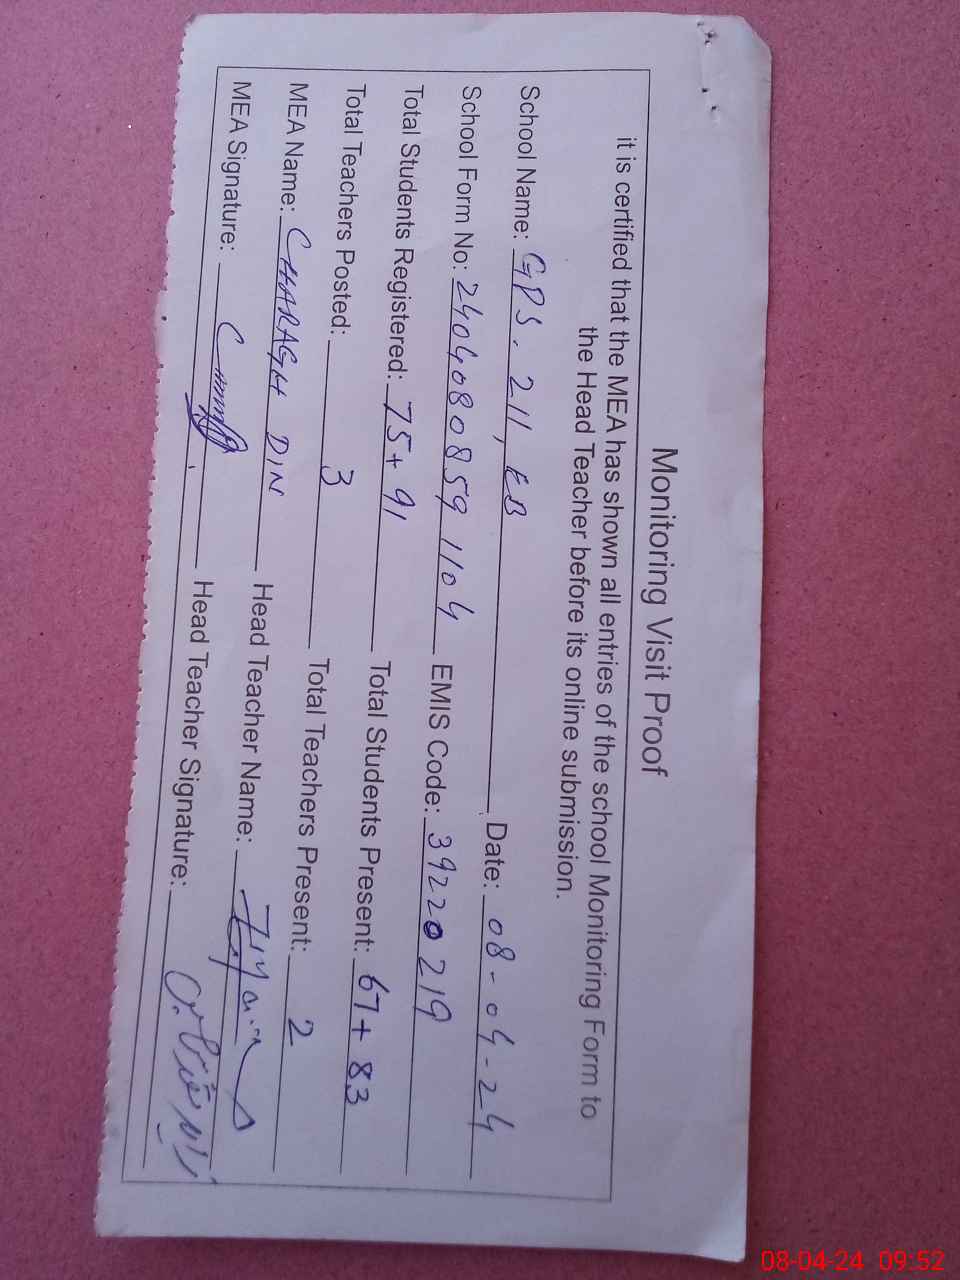 Monitoring Visit Proof
it is certified that the MEA has shown all entries of the school Monitoring Form to
the Head Teacher before its online submission.
School Name: GPS. 211, EB Date: 08-04-24
School Form No: 2404080859 1104 EMIS Code: 39220219
Total Students Registered: 75+91 Total Students Present: 67+83
Total Teachers Posted: 3 Total Teachers Present: 2
MEA Name: CHARAGH DIN Head Teacher Name:
MEA Signature: Head Teacher Signature:
08-04-24 09:52